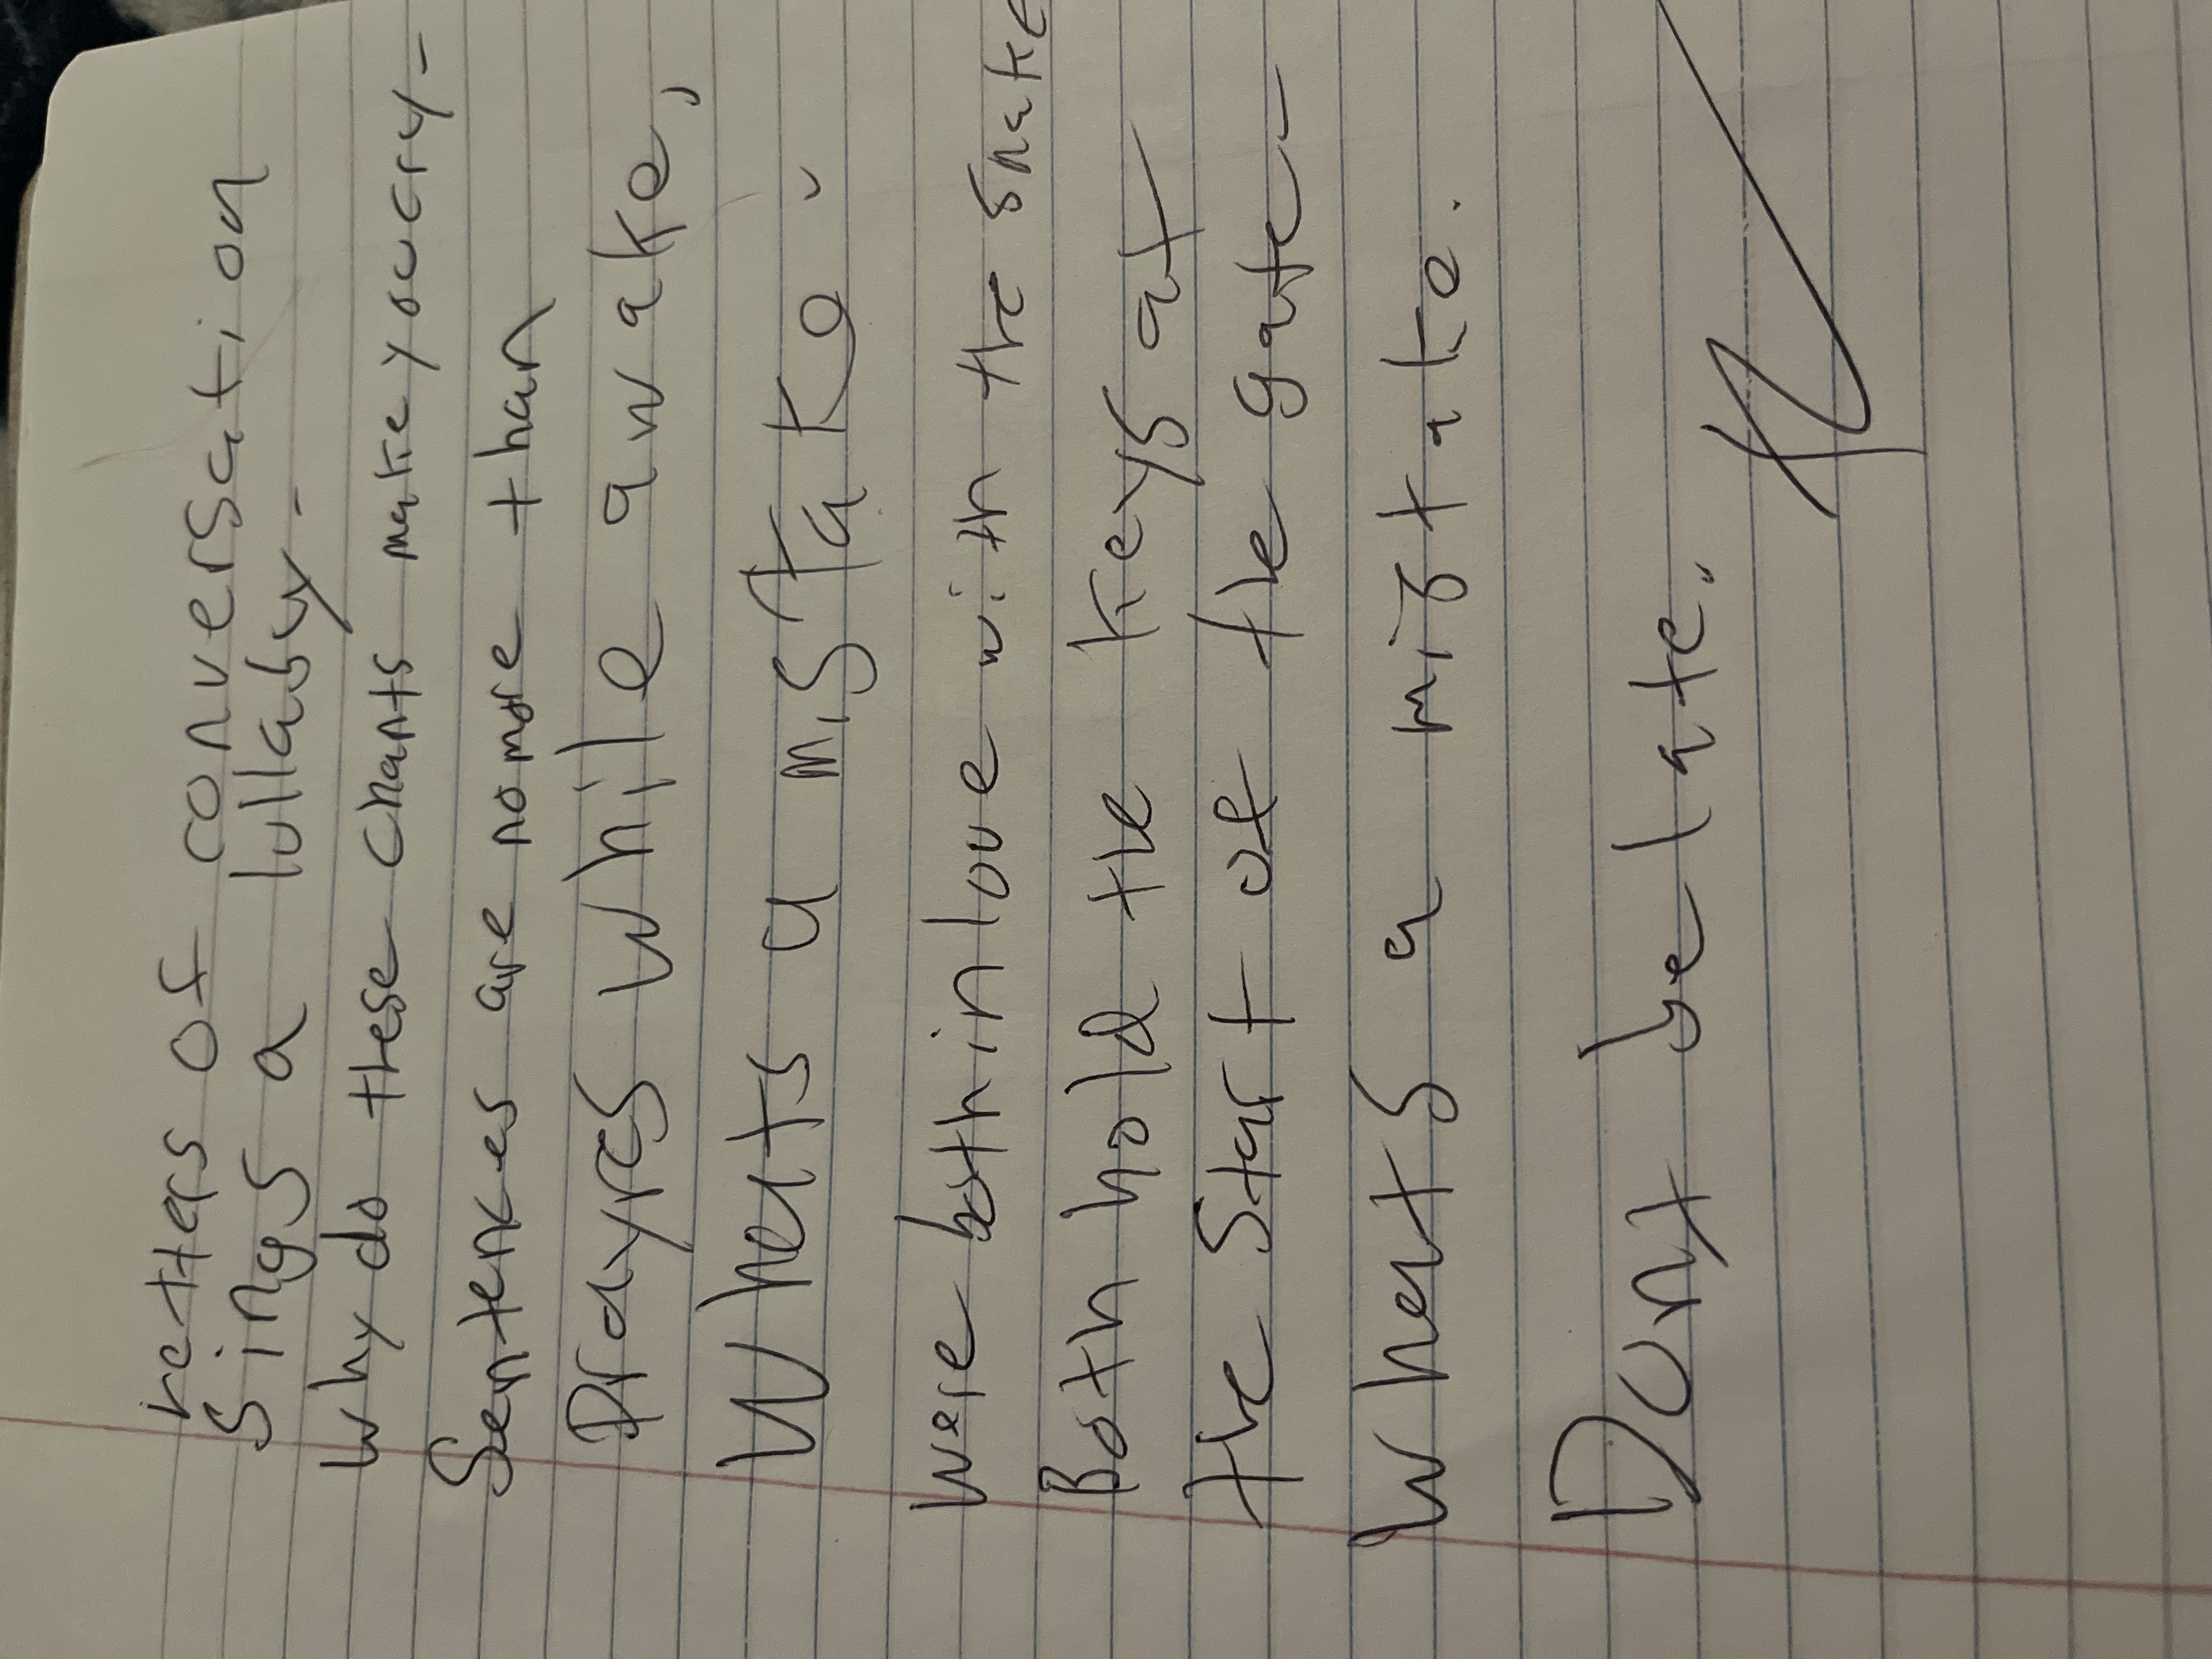 retters of conversation
Sings a lullaby-
Why do these chants make you cry-
Sentences are no more than
Prayres while awake,
Whats a mistake-
Were both in love with the snake
Both hold the keys at
the start of the gate-
Whats a mistake.
Dont be late.